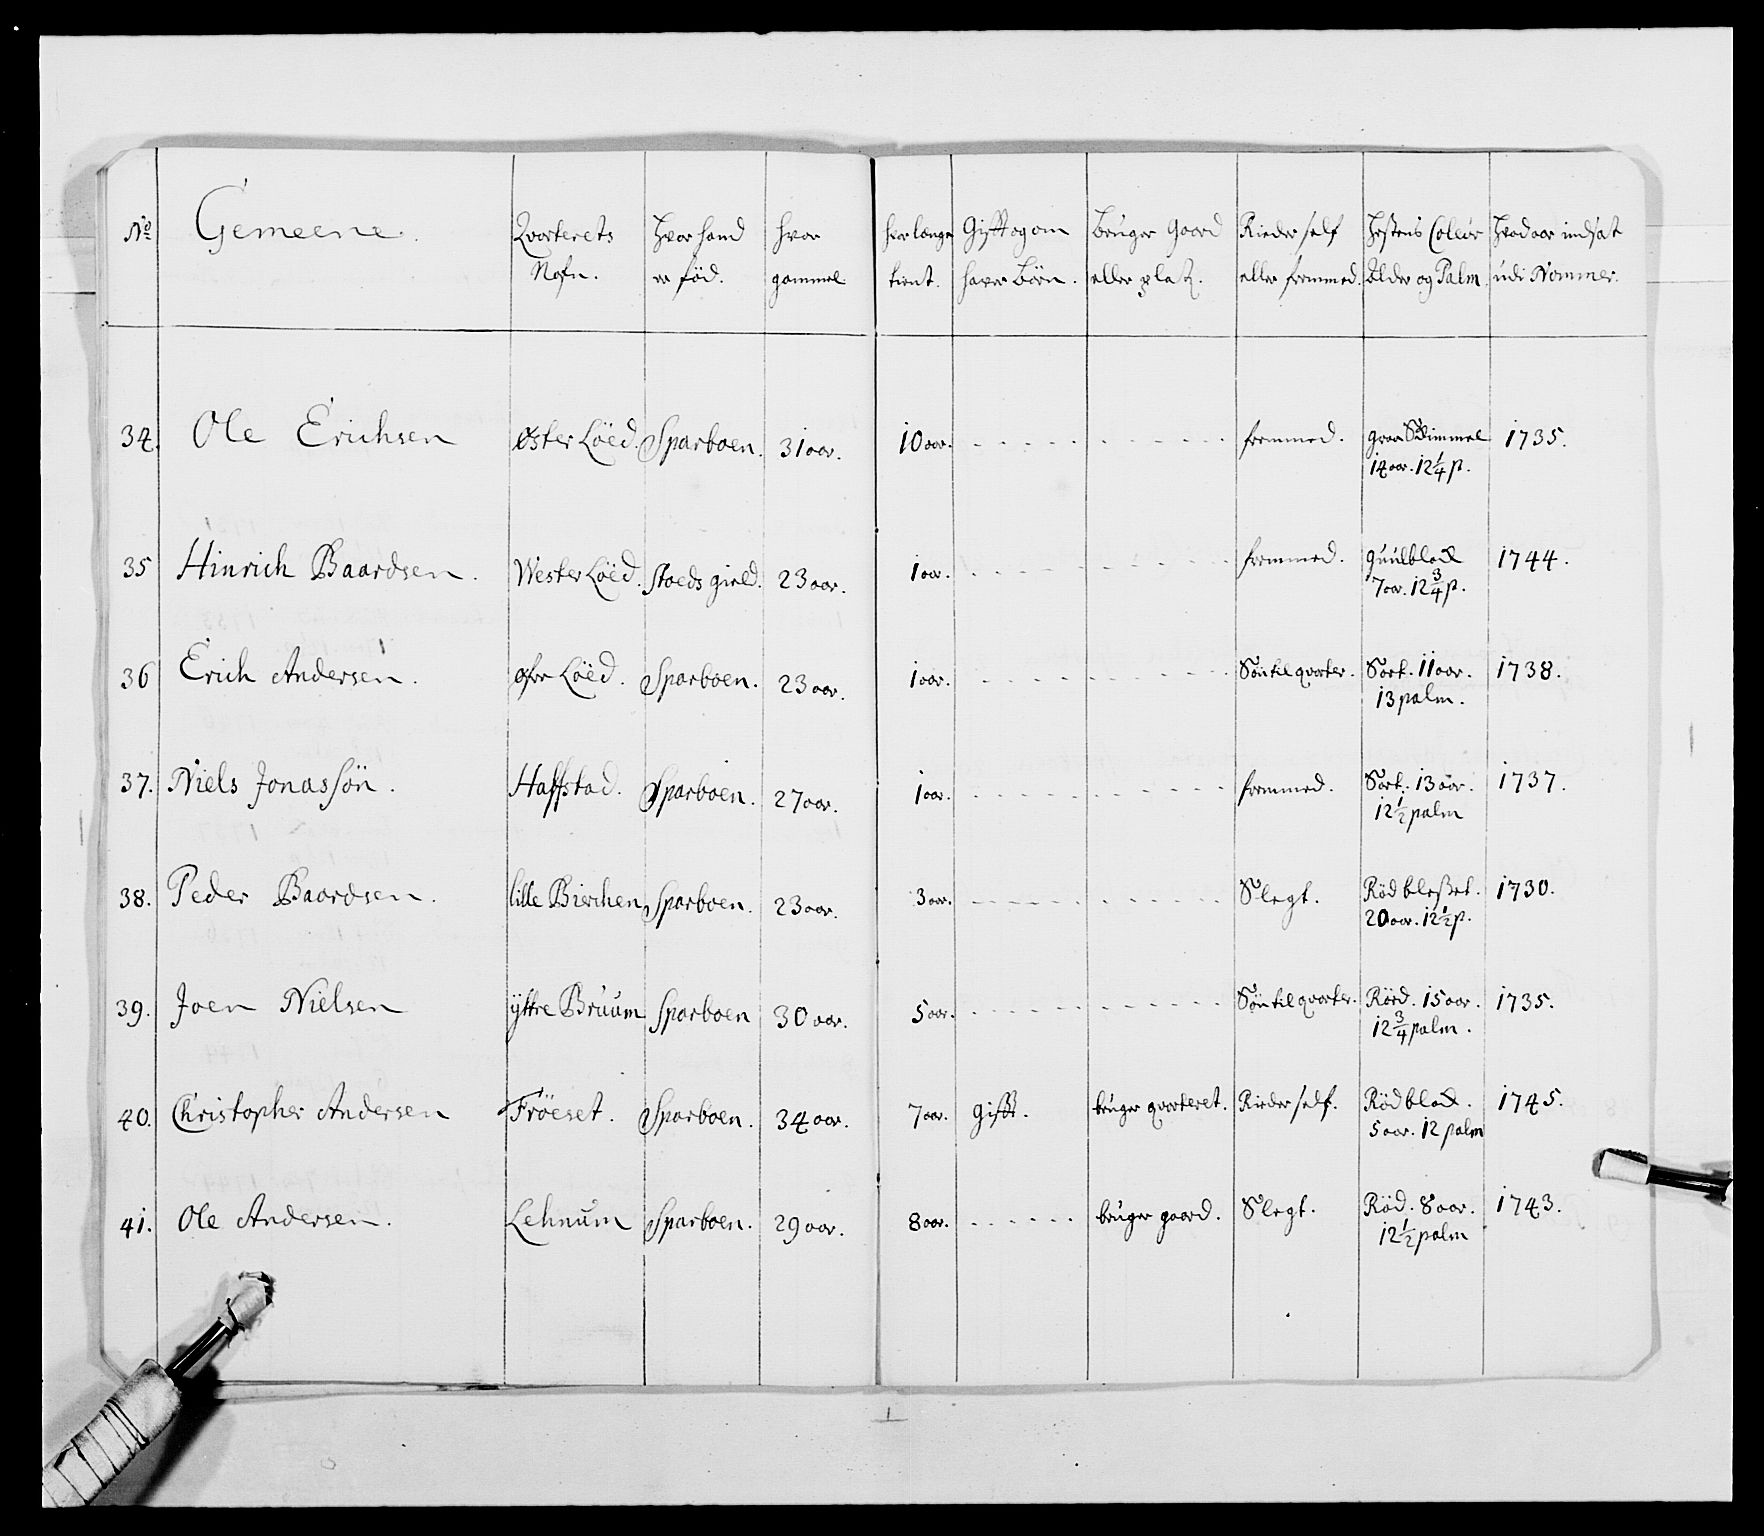 No Gemeene. Qvarterets Nafn. Hvor hand er föd. hvor gammel hvor lange tient. Gifft og om haver Börn. bruger Gaard eller platz. Rieder self eller fremmed. Hestens Coleur Alder og Palm. Hvad aar indsat udi Nommer.
34. Ole Erichsen Øster Löed. Sparboen. 31 aar. 10 aar. fremmed. graa Skimmel 1735.
14 aar. 12 1/4 p.
35 Hinrich Baardsen. Wester Löed. Stoeds gield. 23 aar. 1 aar. fremmed. guulblak 1744.
7 aar. 12 3/4 p.
36 Erich Andersen. øfre Löed. Sparboen. 23 aar. 1 aar. Sön til qvarter. Sort. 11 aar. 1738.
13 palm.
37. Niels Jonassön. Haffstad. Sparboen. 27 aar. 1 aar. fremmed. Sort. 13 aar. 1737.
12 1/2 palm
38. Peder Baardsen. lille Bierchen Sparboen. 23 aar. 3 aar. Slegt. Röd blesset. 1730.
20 aar. 12 1/2 p.
39. Joen Nielsen ÿttre Bruum Sparboen 30 aar. 5 aar. Sön til qvarter. Röd. 15 aar. 1735.
12 3/4 palm.
40. Christopher Andersen Fröeset. Sparboen. 34 aar. 7 aar. Gifft. bruger qvarteret. Rieder self. Rödblak. 1745.
5 aar. 12 palm
41. Ole Andersen. Lehnum Sparboen. 29 aar. 8 aar. bruger gaard. Slegt. Röd. 8 aar. 1743.
12 1/2 palm